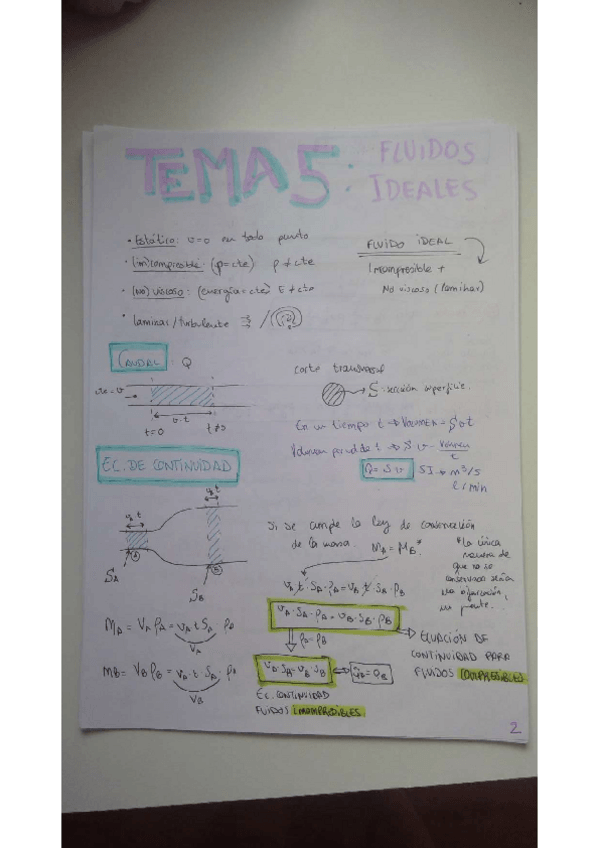 TEMA 5: FLUIDOS IDEALES
• Estático: v=0 en todo punto
• (im)compresible: (ρ=cte) ρ≠cte
• (No) viscoso: (energía=cte) E≠cte
• laminar/turbulento
FLUIDO IDEAL
Incompresible +
No viscoso (laminar)
CAUDAL: Q
v·t
t=0 t≠0
corte transversal
S: sección superficie.
En un tiempo t → VOLUMEN = S·v·t
Volumen por ud de t → S·v = Volumen/t
Q = S·v SI → m³/s
l/min
EC. DE CONTINUIDAD
A B
S_A
S_B
Si se cumple la ley de conservación
de la masa. M_A = M_B*
*La única
manera de
que no se
conservase sería
v_A t · S_A · ρ_A = v_B t · S_B · ρ_B
v_A · S_A · ρ_A = v_B · S_B · ρ_B
→ ECUACIÓN DE
CONTINUIDAD PARA
FLUIDOS COMPRESIBLES
ρ_A = ρ_B
EC. CONTINUIDAD
2